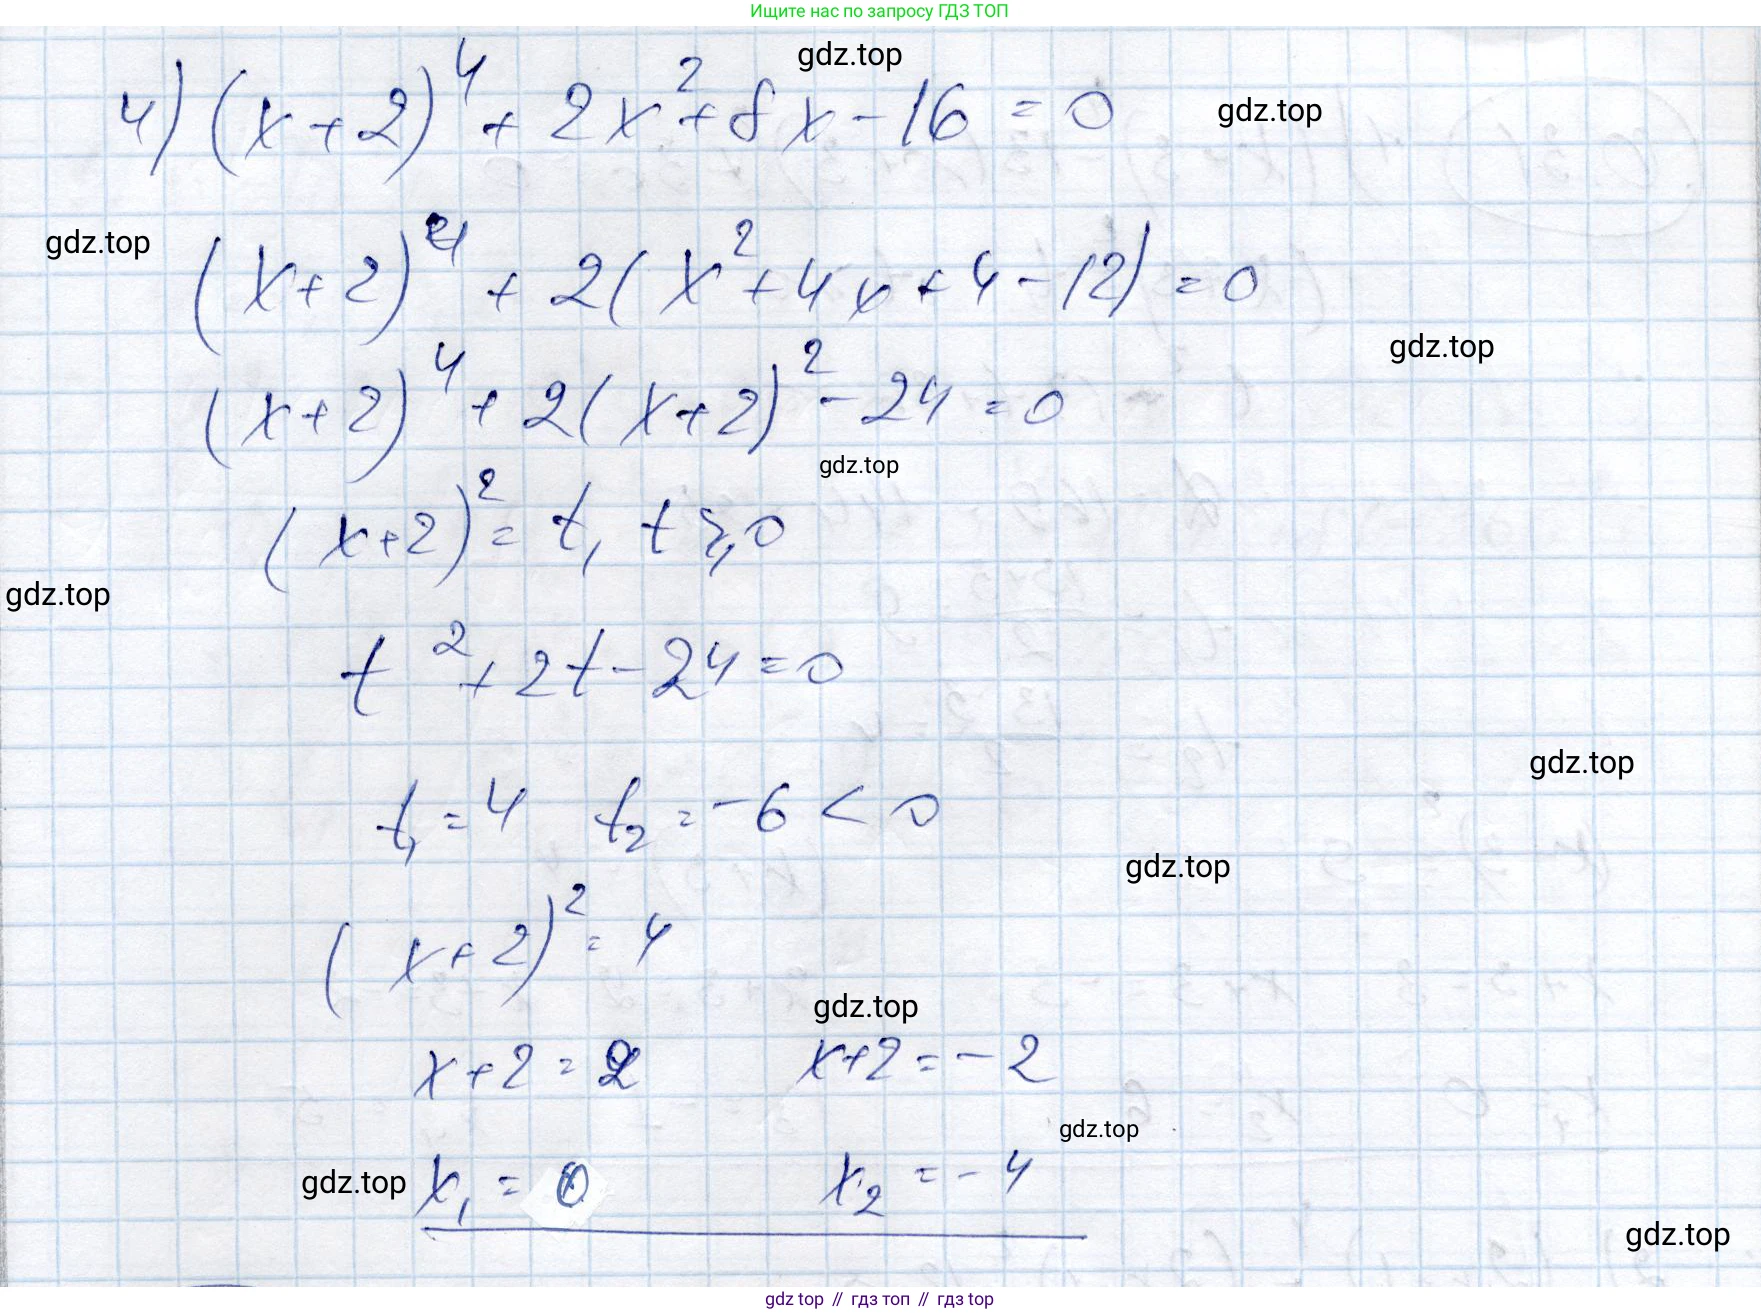 Ищите нас по запросу ГДЗ ТОП
gdz.top
4) (x+2)⁴ + 2x² + 8x - 16 = 0
gdz.top
gdz.top
(x+2)⁴ + 2(x² + 4x + 4 - 12) = 0
gdz.top
(x+2)⁴ + 2(x+2)² - 24 = 0
gdz.top
(x+2)² = t, t ≥ 0
gdz.top
t² + 2t - 24 = 0
gdz.top
t₁ = 4 t₂ = -6 < 0
gdz.top
(x+2)² = 4
gdz.top
x+2 = 2 x+2 = -2
gdz.top
gdz.top x₁ = 0 x₂ = -4
gdz.top
gdz top // гдз топ // gdz top